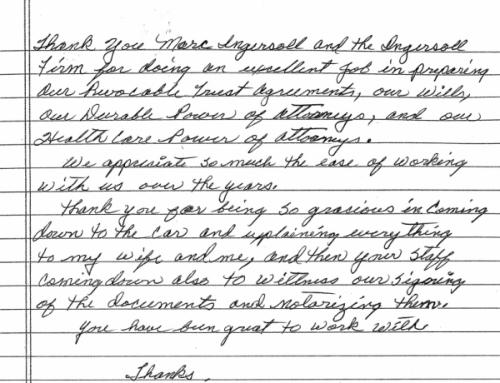 Thank you Marc Ingersoll and the Ingersoll
Firm for doing an excellent job in preparing
our Revocable Trust Agreements, our Wills,
our Durable Power of Attorneys, and our
Health Care Power of attorneys.
We appreciate so much the ease of working
with us over the years.
Thank you for being so gracious in coming
down to the car and explaining everything
to my wife and me, and then your staff
coming down also to wittness our signing
of the documents and notarizing them.
You have been great to work with.
Thanks,